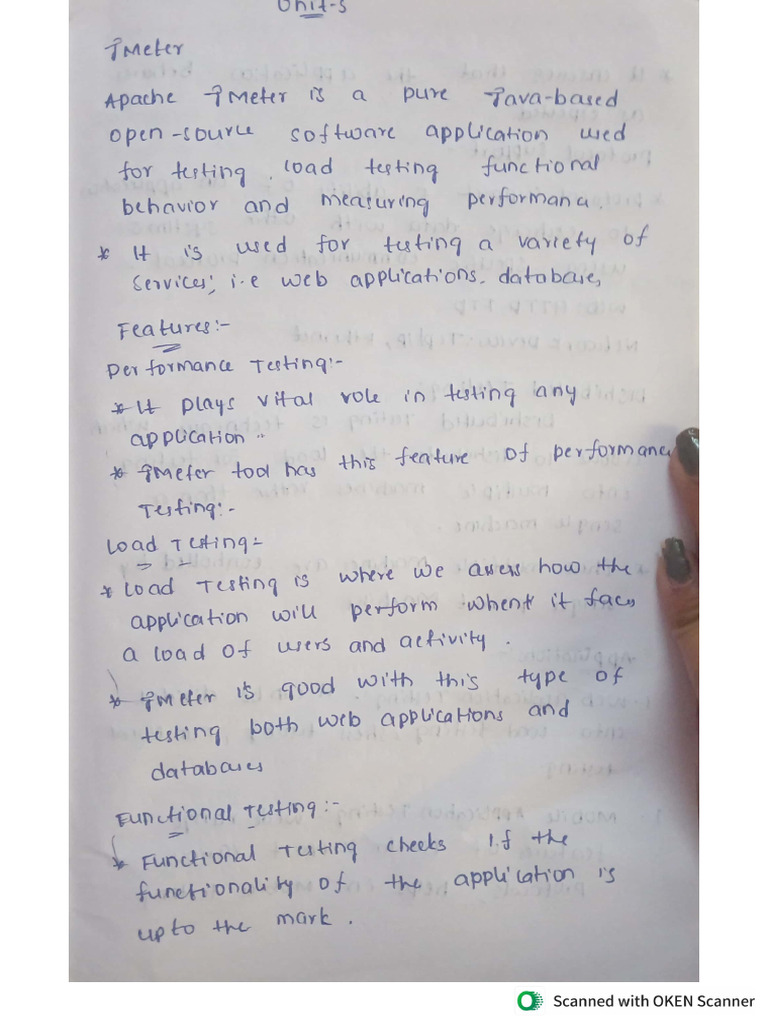 Unit-5
JMeter
Apache JMeter is a pure Java-based
open-source software application used
for testing, load testing functional
behavior and measuring performance.
* It is used for testing a variety of
services; i.e web applications, databases,
Features:-
Performance Testing:-
* It plays vital role in testing any
application..
* JMeter tool has this feature of performance
Testing:-
Load Testing:-
* Load Testing is where we assess how the
application will perform when it faces
a load of users and activity.
* JMeter is good with this type of
testing both web applications and
databases
Functional Testing:-
* Functional Testing checks if the
functionality of the application is
upto the mark.
Scanned with OKEN Scanner